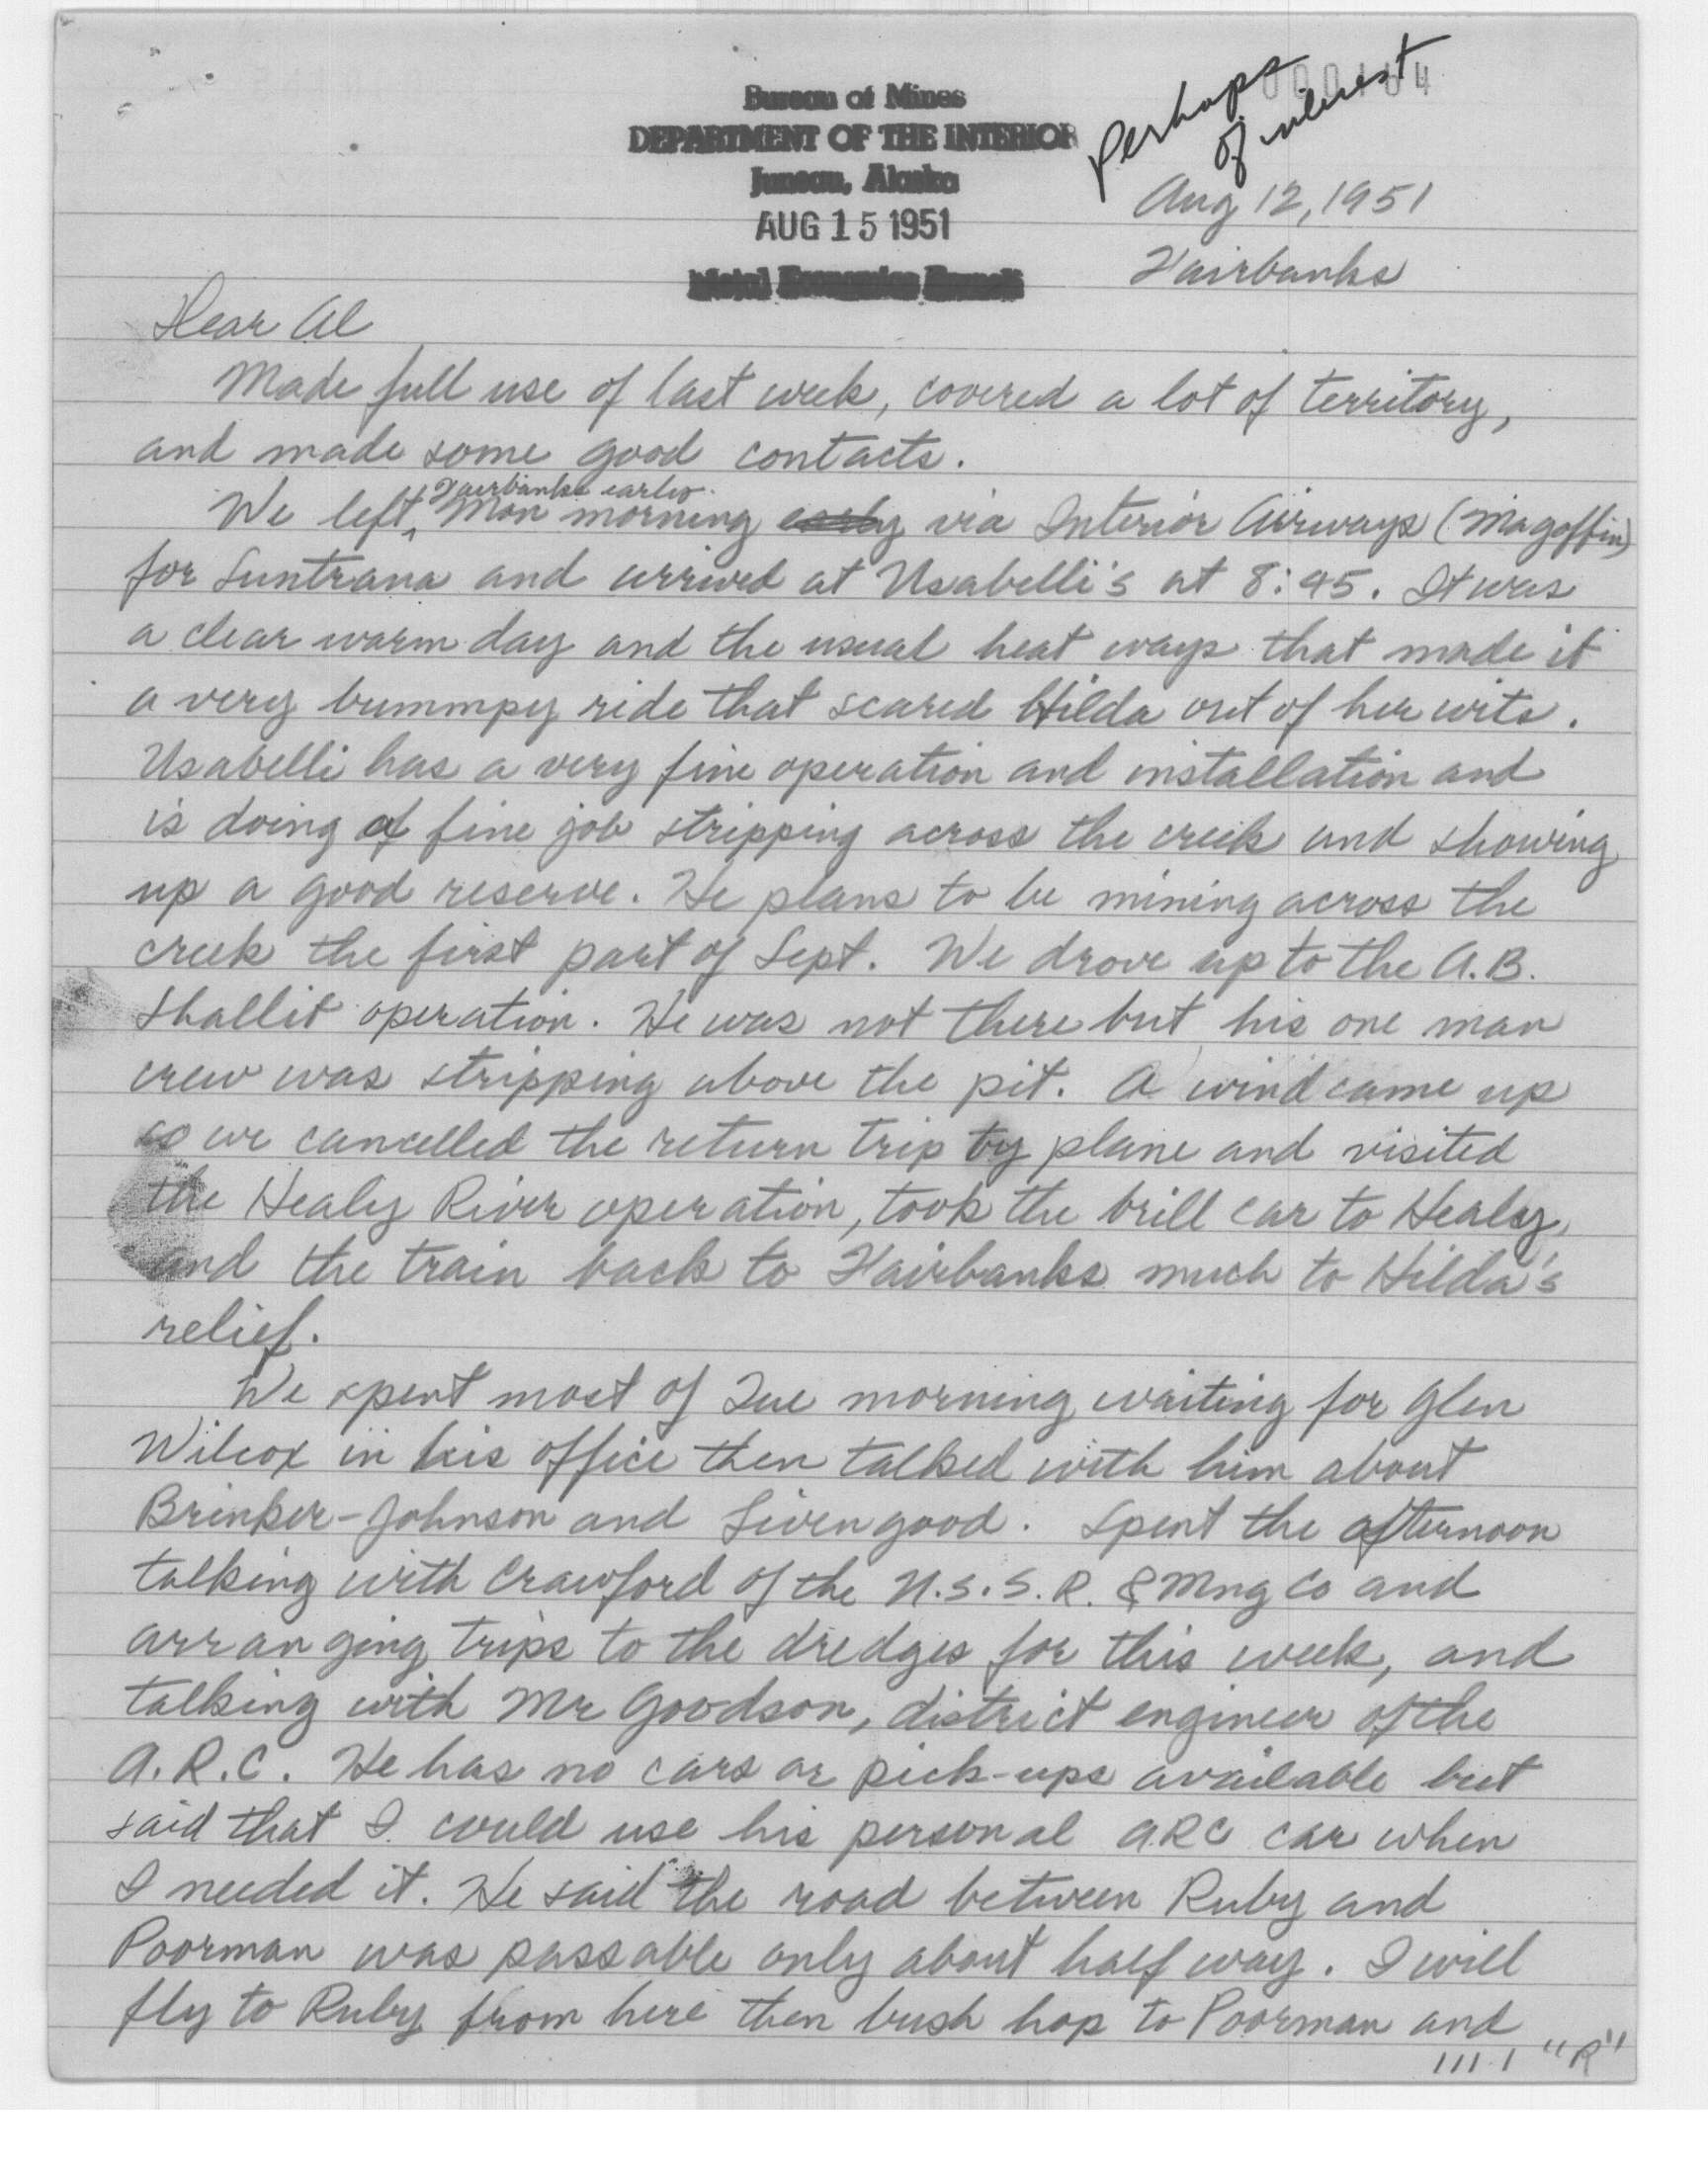 Bureau of Mines
DEPARTMENT OF THE INTERIOR
Juneau, Alaska
AUG 15 1951
Metal Economics Branch
Perhaps
of interest
Aug 12, 1951
Fairbanks
Dear Al
Made full use of last week, covered a lot of territory,
and made some good contacts.
Fairbanks early
We left Mon morning early via Interior Airways (Magoffin)
for Suntrana and arrived at Usabelli's at 8:45. It was
a clear warm day and the usual heat ways that made it
a very bummpy ride that scared Hilda out of her wits.
Usabelli has a very fine operation and installation and
is doing a fine job stripping across the creek and showing
up a good reserve. He plans to be mining across the
creek the first part of Sept. We drove up to the A.B.
Shallit operation. He was not there but his one man
crew was stripping above the pit. A wind came up
so we cancelled the return trip by plane and visited
the Healy River operation, took the brill car to Healy,
and the train back to Fairbanks much to Hilda's
relief.
We spent most of Tue morning waiting for Glen
Wilcox in his office then talked with him about
Brinker-Johnson and Livengood. Spent the afternoon
talking with Crawford of the U.S.S.R. & Mng Co and
arranging trips to the dredges for this week, and
talking with Mr Goodson, district engineer of the
A.R.C. He has no cars or pick-ups available but
said that I could use his personal ARC car when
I needed it. He said the road between Ruby and
Poorman was passable only about half way. I will
fly to Ruby from here then bush hop to Poorman and
"R"